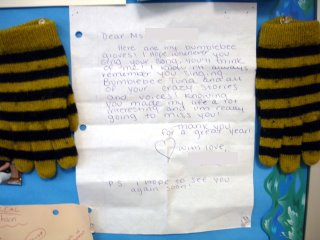 Dear Ms
Here are my bumblebee
gloves! I hope whenever you
sing your song, you'll think
of me! I know I'll always
remember you singing
Bumblebee Tuna and all
of your crazy stories
and voices! Knowing
you made my life a lot
interesting and I'm really
going to miss you!
Thank you
for a great year!
With love,
P.S. I hope to see you
again soon!